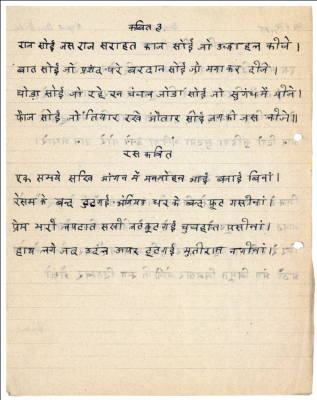 कवित 3
राज सोई जस राज सराहत काज सोई जो उकाहन कीजे।
बात सोई जो प्रचंड धरे बरदान सोई जो मना कर दीजे।
घोड़ा सोई जो रहे रन चंचल जोडा सोई जो सुगंध में भीजे।
फौज सोई जो तियार रखे औतार सोई जग को जस लीजे॥
रस कवित
एक समये सखि आंगन में मनमोहन आई बनाई बिना।
रेसम के बन्द टुटगई अंगिया घर के बन्द फूट गसीना।
प्रेम भरी लपटात सखी
हाथ लगे जद उपर टुटगई मुतीराम नगीना।